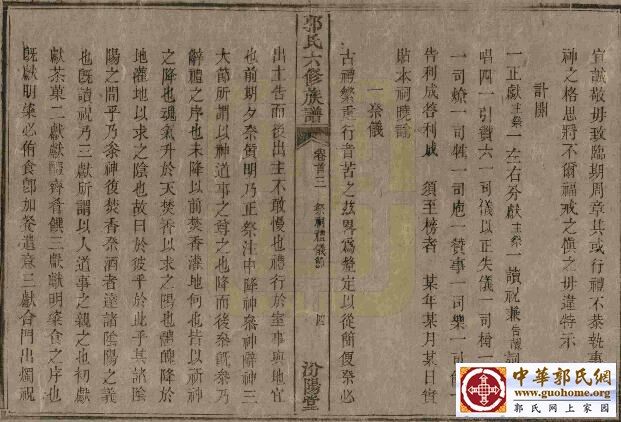 宜誠敬毋致臨期周章其或行禮不恭執事
神之格思將不爾福戒之慎之毋違特示
計開
一正獻主祭一左右分獻主祭一讀祝兼告嘏詞
唱四一引贊六一司儀以正失儀一司
一司燎一司牲一司庖一贊事一司樂一司
告利成答利成 須至榜者 某年某月某日
貼本祠曉諭
一祭儀
古禮繁重行者苦之茲畧為釐定以從簡復祭必
郭氏六修族譜
卷首三 祭祠禮儀節
四
汾陽堂
出主告而後出主不敢慢也禮行於室事與地官
也前期夕祭質明乃正祭注中降神參神辭神三
大節所謂以神道事之尊之也降而後參既參
辭禮之序也未降以前焚香灌地何也皆以祈神
之降也魂氣升於天焚香以求之陽也體魄降於
地灌地以求之陰也故曰於彼乎於此乎其諸陰
陽之間乎乃參神復焚香祭酒者達諸陰陽之義
也既讀祝乃三獻所謂以人道事之親之也初獻
獻茶菓二獻獻醴齊肴饌三獻獻明粢食之序也
既獻明粢必侑食卽加餐遺意三獻合門出燭祝
中華郭氏網
www.guohome.org
郭氏网上家园